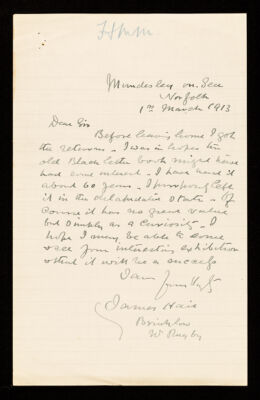 Mundesley on Sea
Norfolk
1st March 1913
Dear Sir
Before leaving home I got
the returns. I was in hopes the
old Black letter book might have
had some interest. I have had it
about 60 years. I purposely left
it in the dilapidated state. Of
course it has no great value
but simply as a curiosity. I
hope I may be able to come
& see your interesting exhibition
& that it will be a success
I am yours truly
James Hair
Brinklow
Nr Rugby